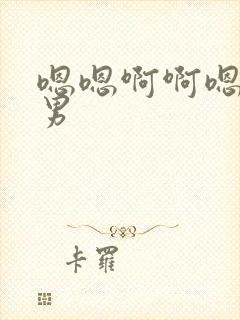 嗯嗯啊啊嗯
男
卡羅